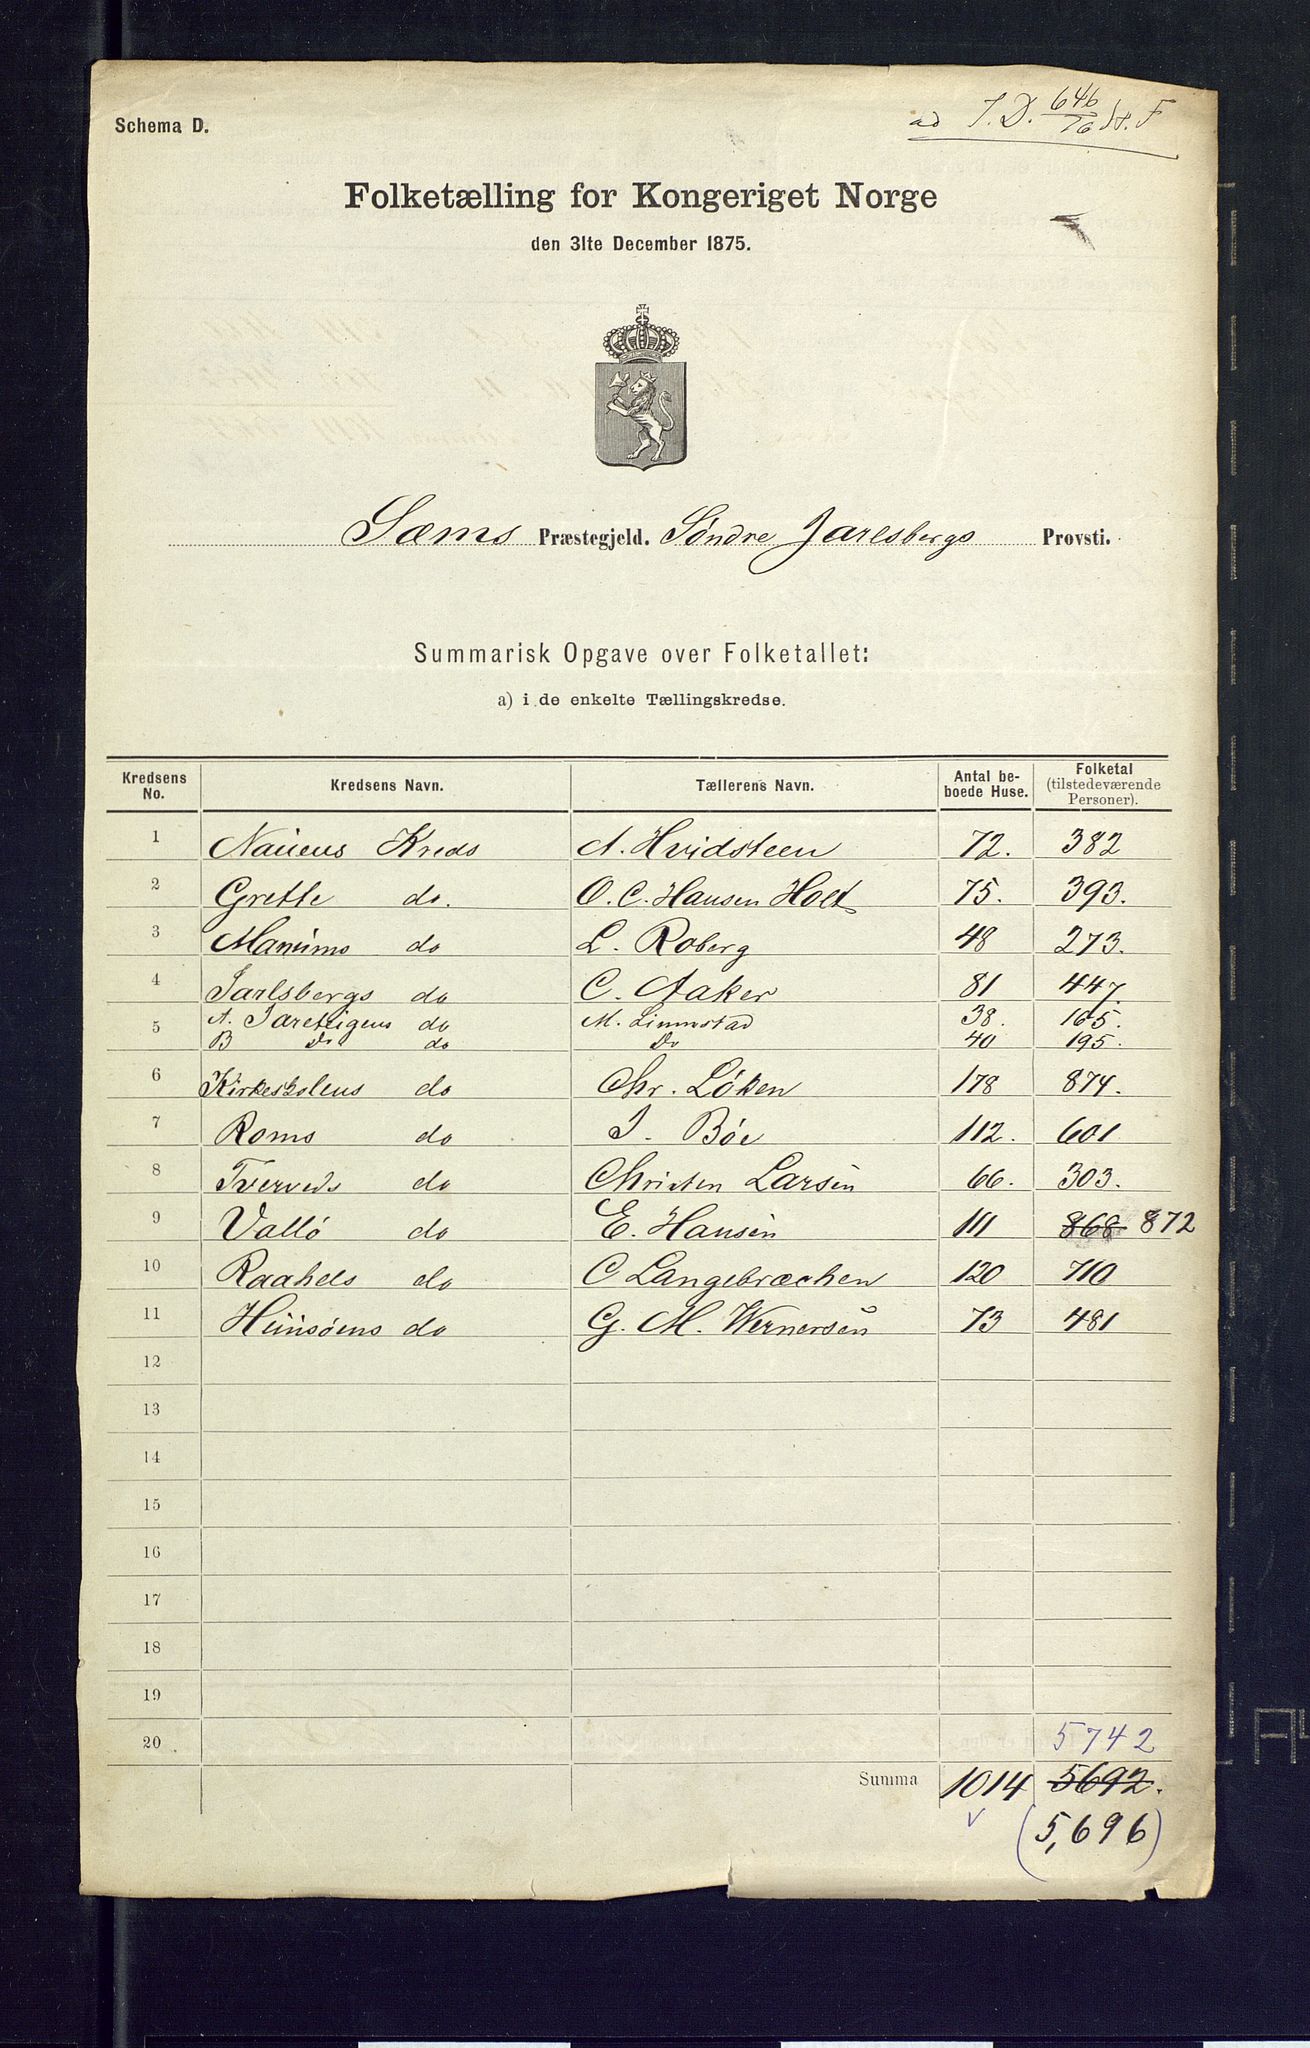 Schema D.
ad J.D. 646/76 St. F
Folketælling for Kongeriget Norge
den 31te December 1875.
Sæms Præstegjeld. Søndre Jarlsbergs Provsti.
Summarisk Opgave over Folketallet:
a) i de enkelte Tællingskredse.
Kredsens No. Kredsens Navn. Tællerens Navn. Antal beboede Huse. Folketal (tilstedeværende Personer).
1 Nauens Kreds A. Hvidsteen 72. 382
2 Grette do. O. C. Hansen Holt 75. 393.
3 do L. Roberg 48 273.
4 Jarlsbergs do C. Aaker 81 447.
5 A. Jareteigens do M. Linnestad 38. 165.
B Do do Do 40 195.
6 Kirkeskolens do Chr. Løken 178 874.
7 Roms do J. Bøe 112. 601
8 Tverveds do Christen Larsen 66. 303.
9 Vallö do E. Hansen 111 868 872
10 Raahels do C Langebræchen 120 710
11 Husøens do G. M. Wernersen 73 481
12
13
14
15
16
17
18
19
20 5742
Summa 1014 5692.
(5,696)